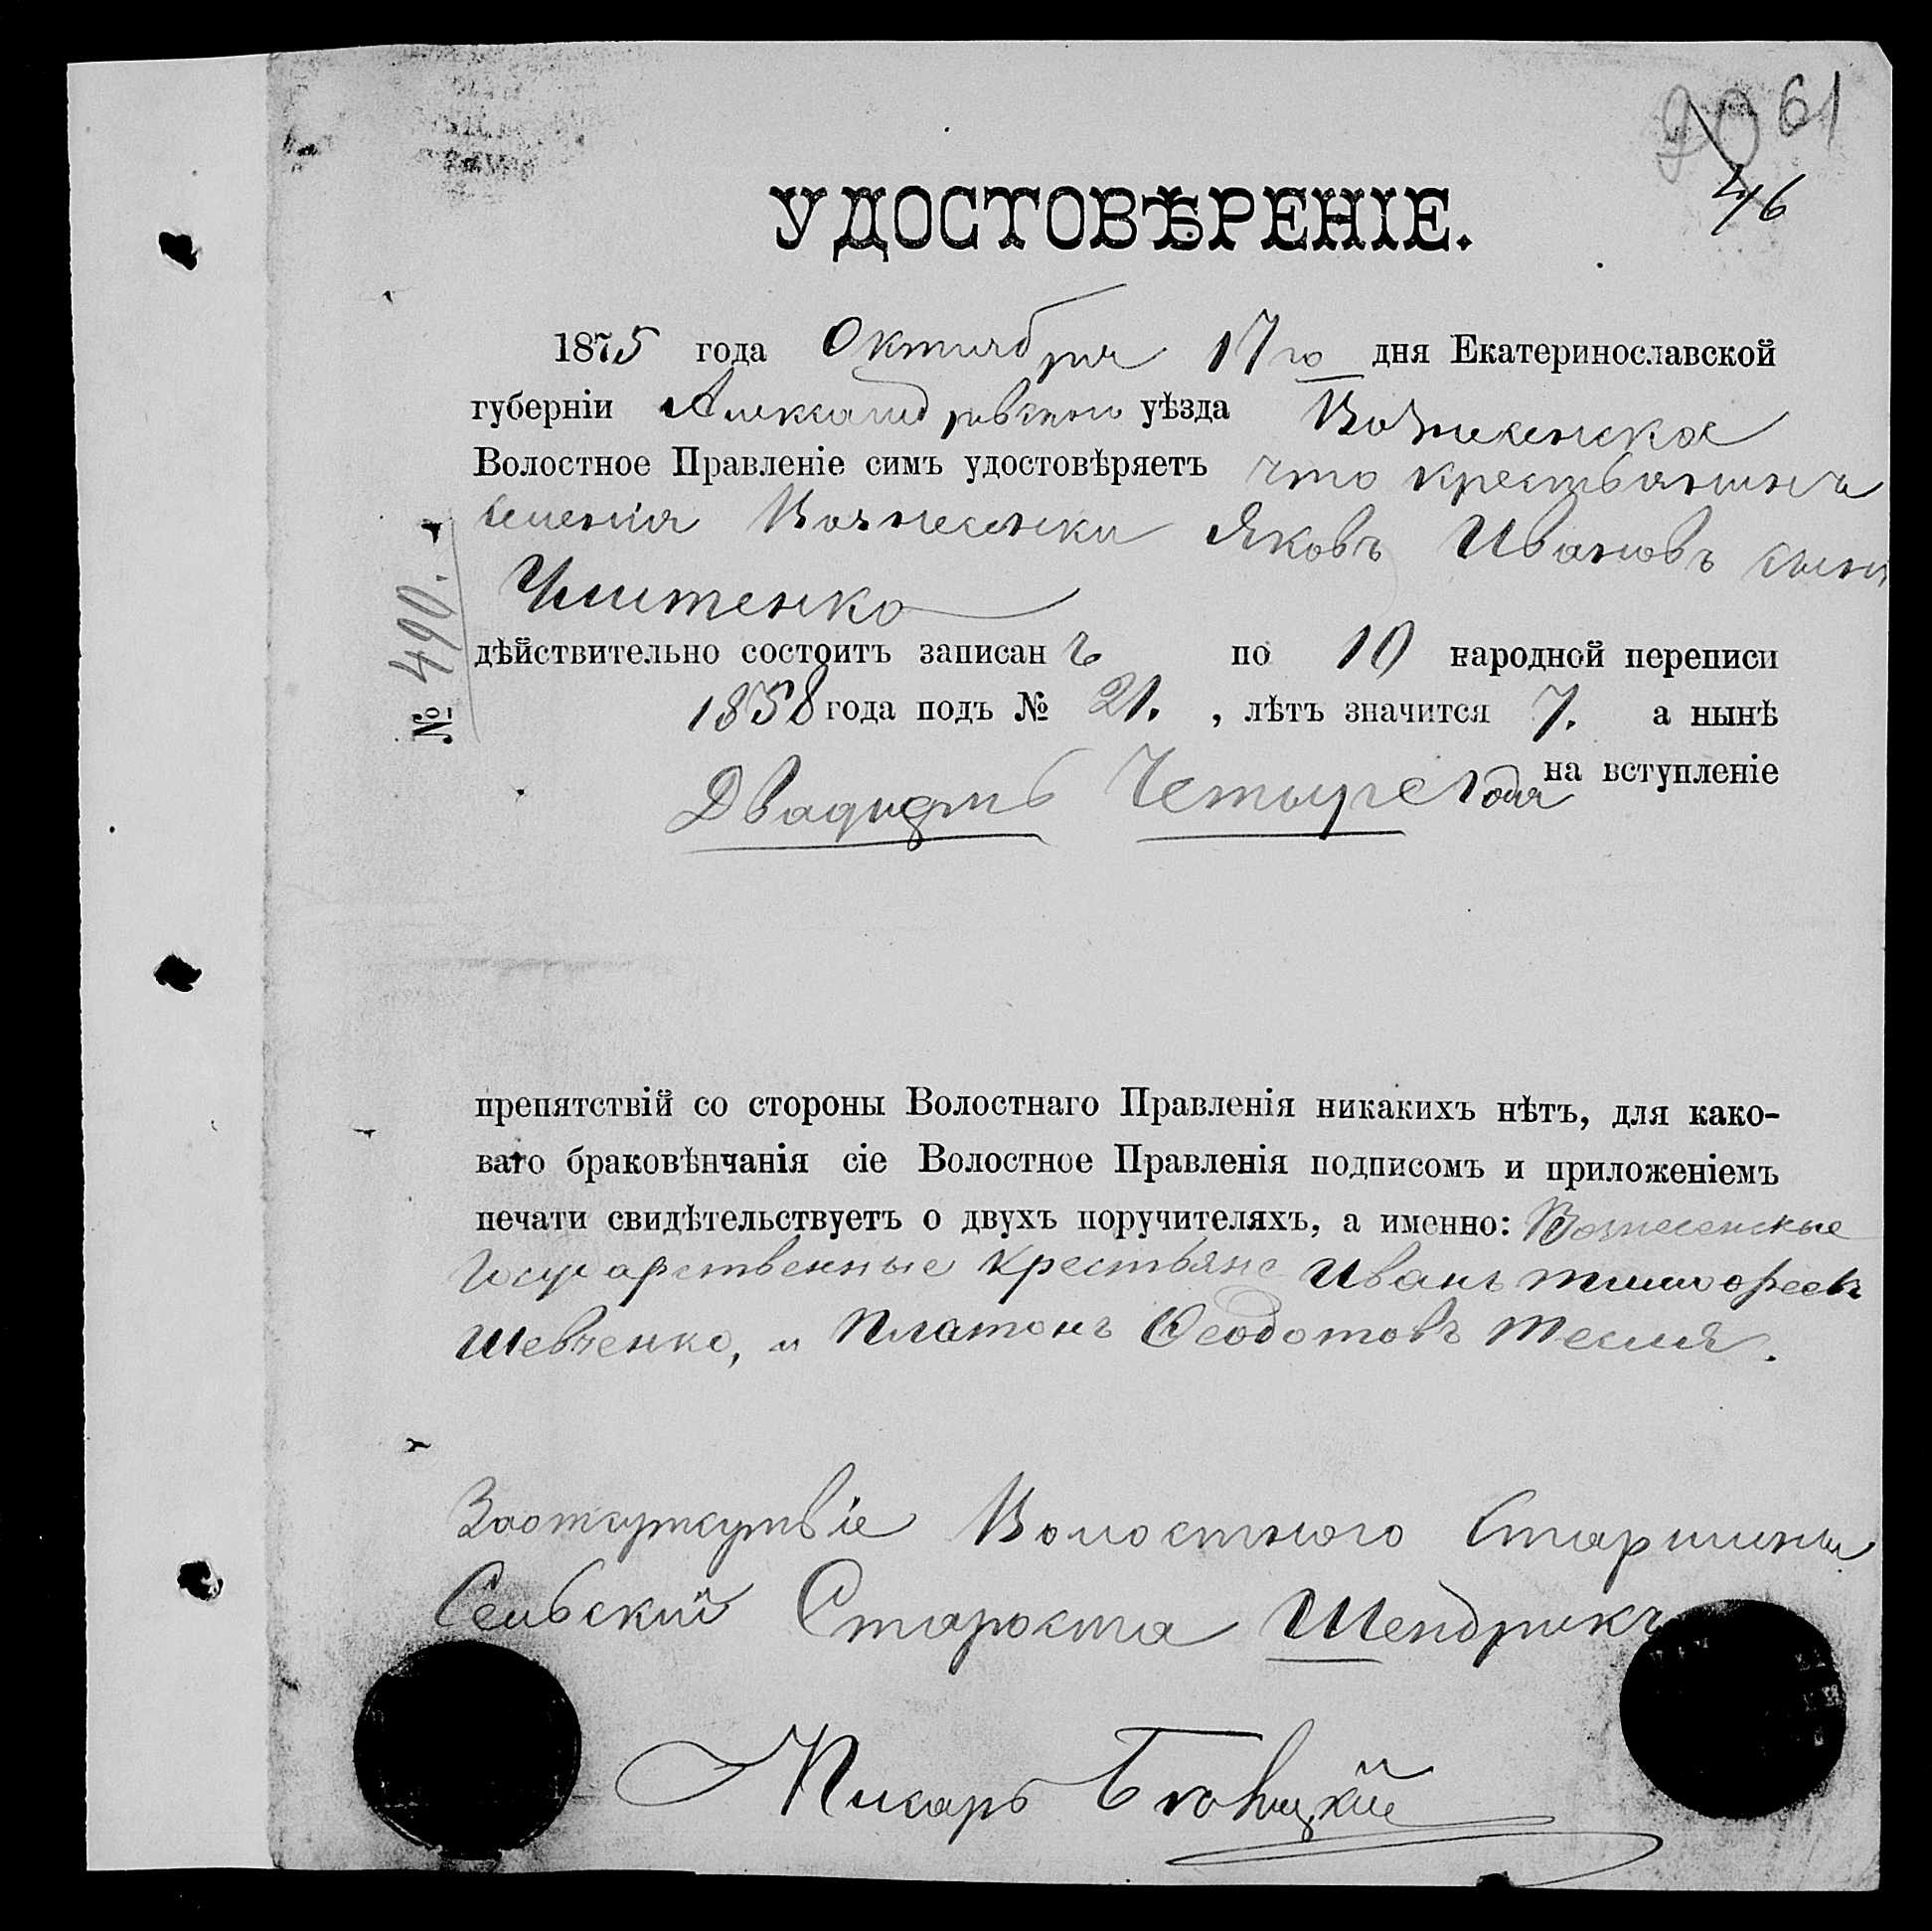 90 61
46
УДОСТОВѢРЕНІЕ.
1875 года Октября 17го дня Екатеринославской
губерніи Александровского уѣзда Вознесенское
Волостное Правленіе симъ удостовѣряетъ что крестьянинъ
селенія Вознесенки Яковъ Ивановъ сынъ
дѣйствительно состоитъ записанъ по 10 народной переписи
1858 года подъ № 21. , лѣтъ значится 7. а нынѣ
Двадцать Четыре года на вступленіе
№ 490.
препятствій со стороны Волостнаго Правленія никакихъ нѣтъ, для како-
ваго браковѣнчанія сіе Волостное Правленія подписомъ и приложеніемъ
печати свидѣтельствуетъ о двухъ поручителяхъ, а именно: Вознесенскые
Государственные крестьяне Иванъ Тимофеевъ
Шевченко, и Платонъ Ѳеодотовъ Тесля.
Волостного Старшины
Сельский Староста Шендрикъ
Писарь